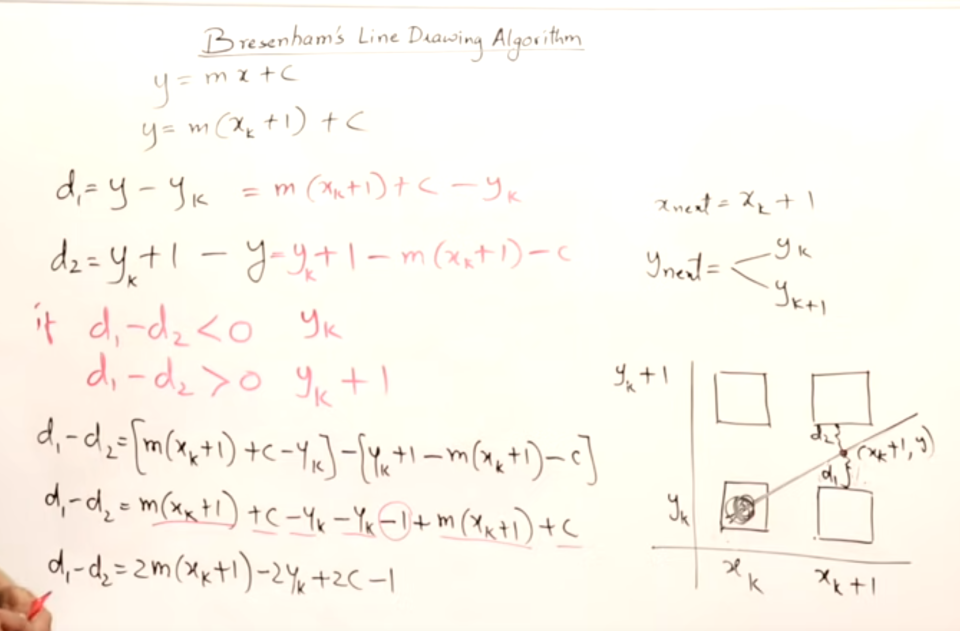 Bresenham's Line Drawing Algorithm
y = mx + c
y = m(xₖ+1) + c
d₁ = y − yₖ = m(xₖ+1) + c − yₖ
d₂ = yₖ+1 − y = yₖ+1 − m(xₖ+1) − c
if d₁−d₂ < 0 yₖ
d₁−d₂ > 0 yₖ + 1
d₁−d₂ = [m(xₖ+1) + c − yₖ] − [yₖ+1 − m(xₖ+1) − c]
d₁−d₂ = m(xₖ+1) + c − yₖ − yₖ − 1 + m(xₖ+1) + c
d₁−d₂ = 2m(xₖ+1) − 2yₖ + 2c − 1
xnext = xₖ + 1
ynext = yₖ
yₖ₊₁
yₖ+1
d₂
(xₖ+1, y)
d₁
yₖ
xₖ
xₖ+1